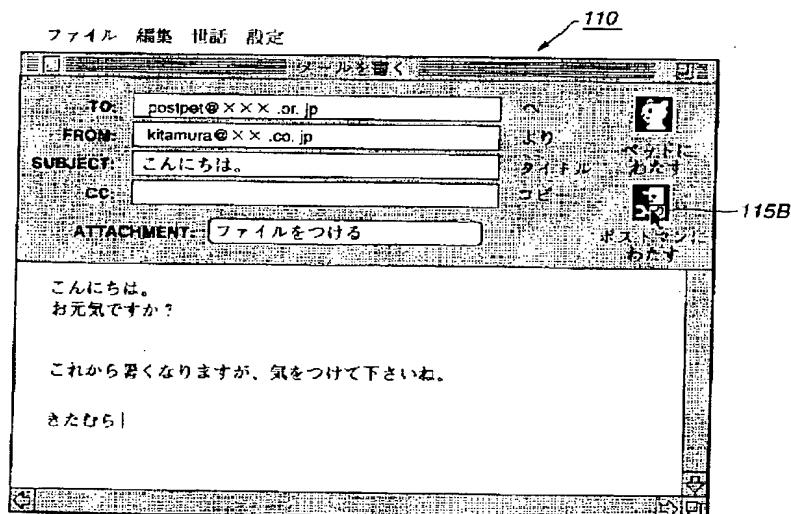 110
ファイル 編集 世話 設定
メールを書く
TO: postpet@×××.or.jp へ
FROM: kitamura@××.co.jp より
SUBJECT: こんにちは。 タイトル
CC: コピー
ATTACHMENT: ファイルをつける
ペットに
わたす
115B
ポストマンに
わたす
こんにちは。
お元気ですか?
これから暑くなりますが、気をつけて下さいね。
きたむら